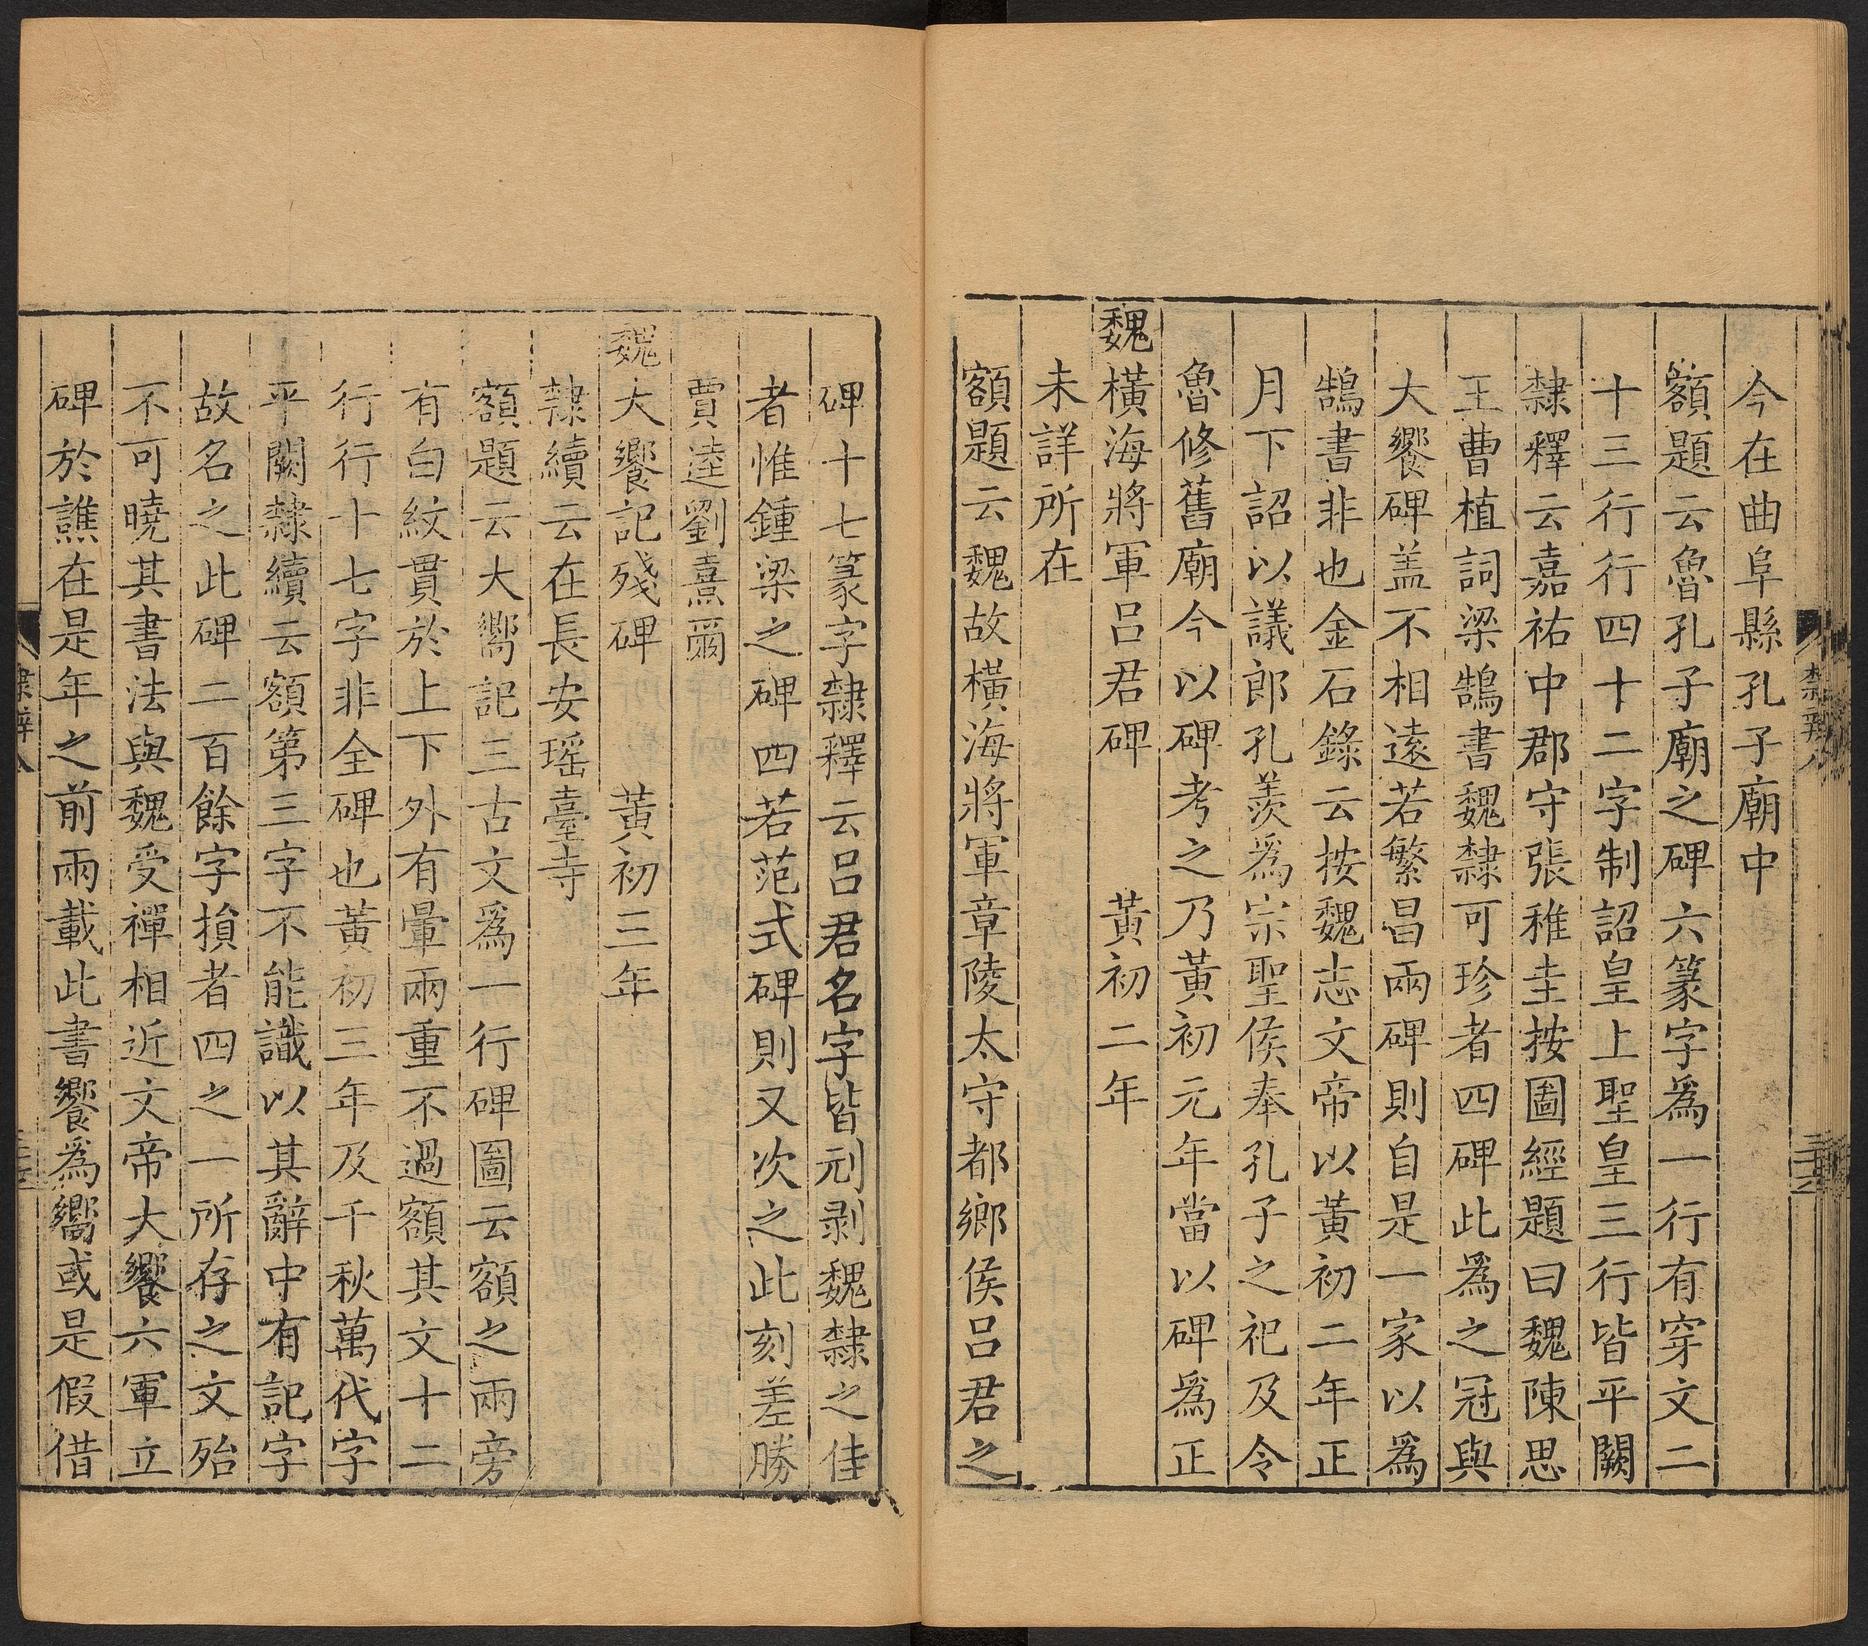 今在曲阜縣孔子廟中
額題云魯孔子廟之碑六篆字爲一行有穿文二
十三行行四十二字制詔皇上聖皇三行皆平闕
隸釋云嘉祐中郡守張稚圭按圖經題曰魏陳思
王曹植詞梁鵠書魏隸可珍者四碑此爲之冠與
大饗碑盖不相遠若繁昌兩碑則自是一家以爲
鵠書非也金石錄云按魏志文帝以黃初二年正
月下詔以議郎孔羨爲宗聖侯奉孔子之祀及令
魯修舊廟今以碑考之乃黃初元年當以碑爲正
魏橫海將軍呂君碑　黃初二年
未詳所在
額題云魏故橫海將軍章陵太守都鄉侯呂君之
碑十七篆字隸釋云呂君名字皆刓剥魏隸之佳
者惟鍾梁之碑四若范式碑則又次之此刻差勝
賈逵劉熹爾
魏大饗記殘碑　黃初三年
隸續云在長安瑶臺寺
額題云大嚮記三古文爲一行碑圖云額之兩旁
有白紋貫於上下外有暈兩重不過額其文十二
行行十七字非全碑也黃初三年及千秋萬代字
平闕隸續云額第三字不能識以其辭中有記字
故名之此碑二百餘字損者四之一所存之文殆
不可曉其書法與魏受禪相近文帝大饗六軍立
碑於譙在是年之前兩載此書饗爲嚮或是假借